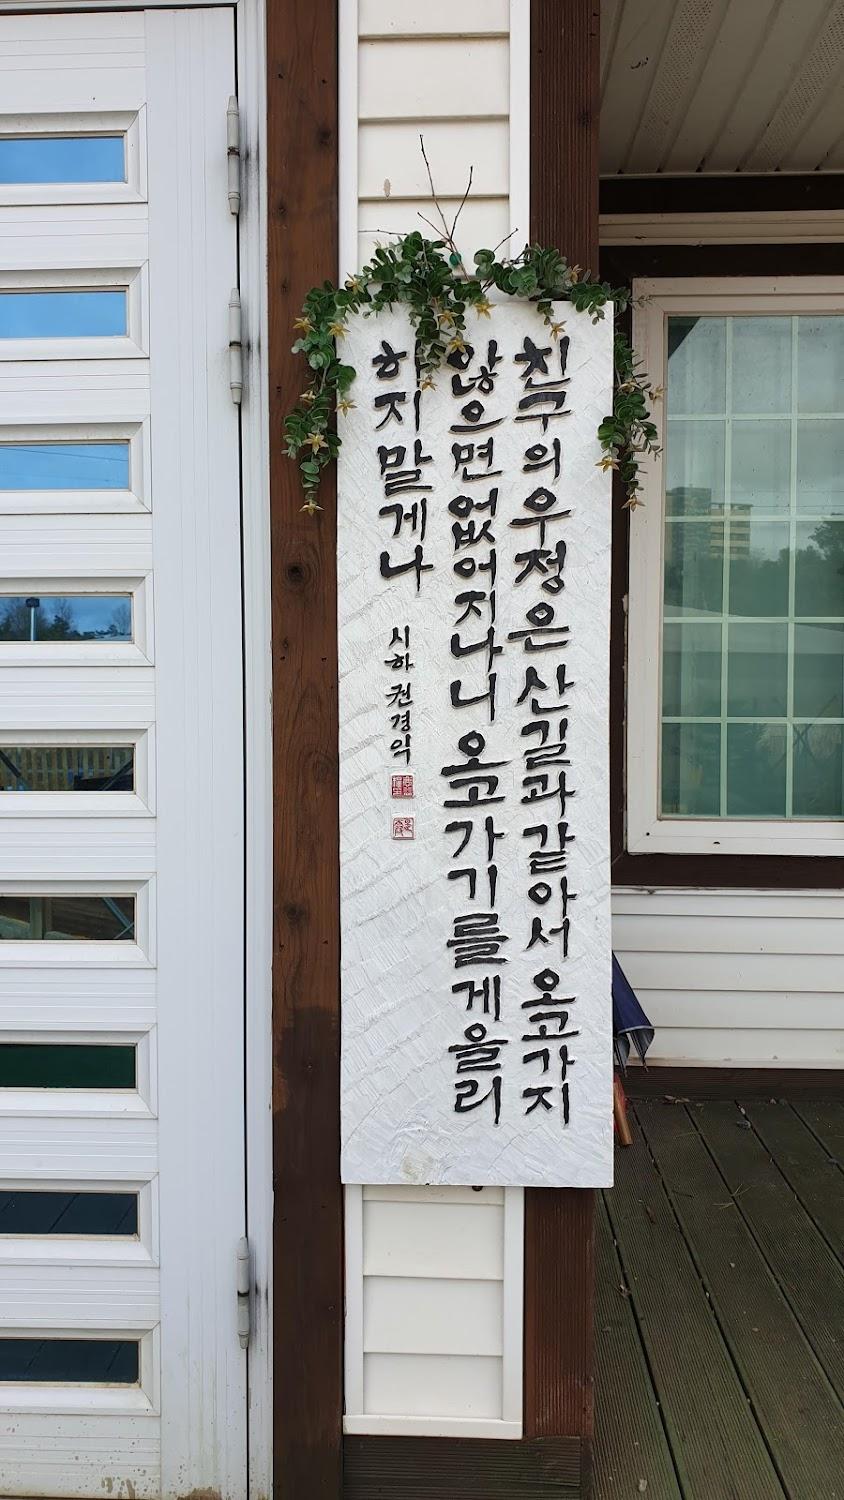 친구의 우정은 산길과 같아서 오고가지
않으면 없어지나니 오고가기를 게을리
하지 말게나
시하 권경익